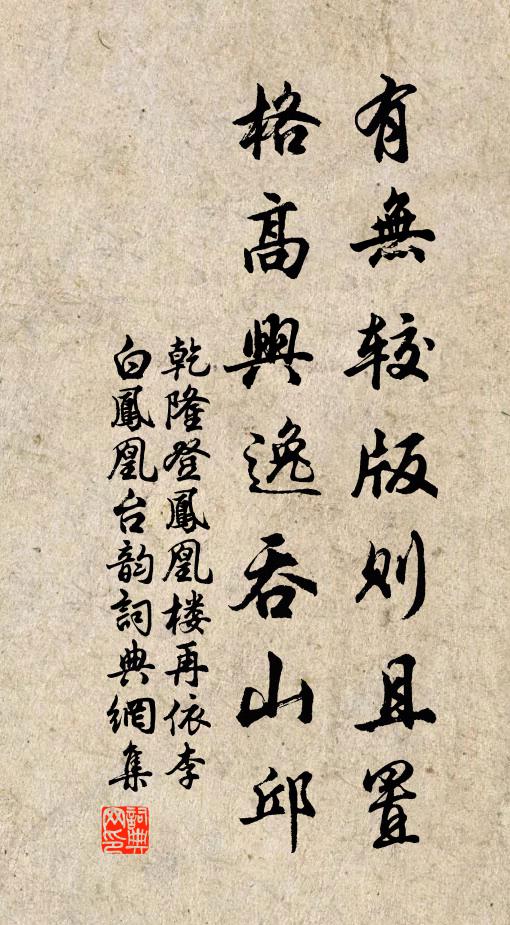 有無較版則且置
格高興逸吞山邱
乾隆登鳳凰楼再依李
白鳳凰台韵詞典網集
詞典网印